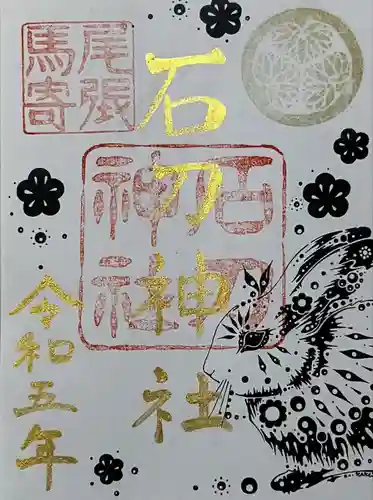 尾張
馬寄
石刀神社
石刀
神社
令和五年